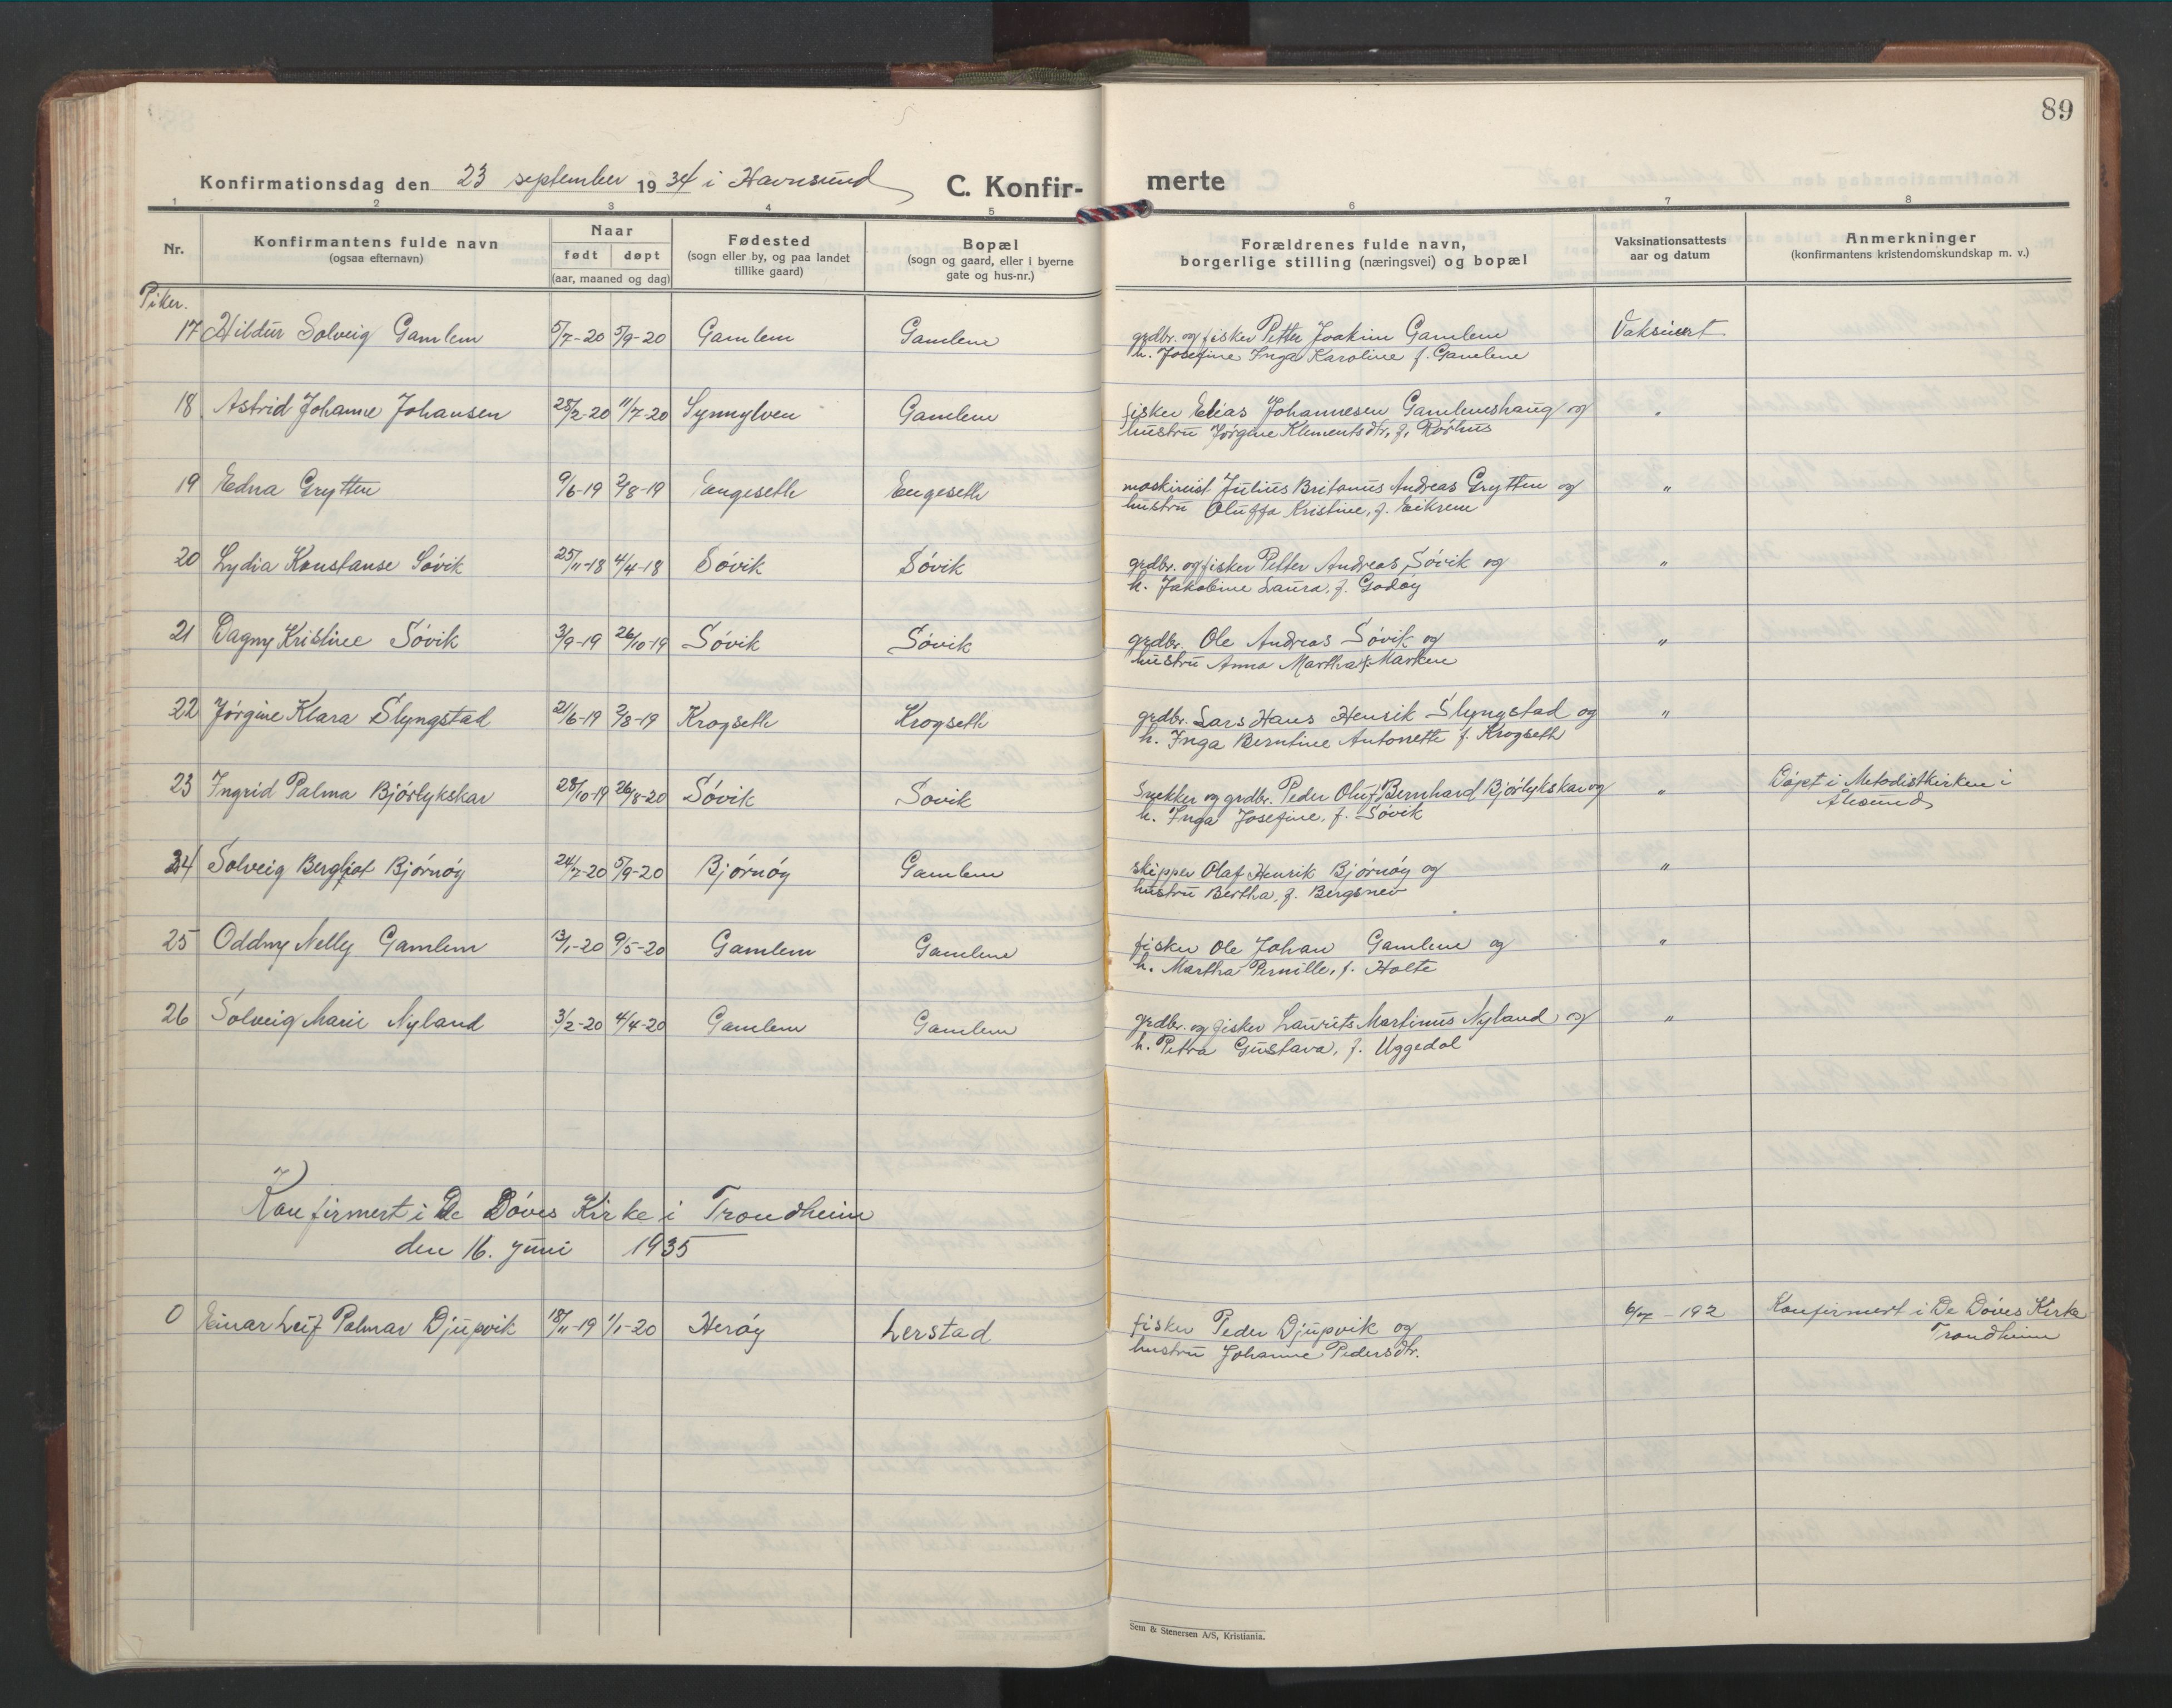 89
Konfirmationsdag den 23 september 1934 i Havnsund C. Konfir- merte
1 2 3 4 5 6 7 8
Nr. Konfirmantens fulde navn (ogsaa efternavn) Naar født døpt (aar, maaned og dag) Fødested (sogn eller by, og paa landet tillike gaard) Bopæl (sogn og gaard, eller i byerne gate og hus-nr.) Forældrenes fulde navn, borgerlige stilling (næringsvei) og bopæl Vaksinationsattests aar og datum Anmerkninger (konfirmantens kristendomskundskap m. v.)
Piker.
17 Hildur Solveig Gamlem 5/7-20 5/9-20 Gamlem Gamlem grdbr. og fisker Petter Joakim Gamlem Vaksinert
h. Josefine Inga Karoline f. Gamlem
18 Astrid Johanne Johansen 28/2-20 11/7-20 Synnylven Gamlem fisker Elias Johannesen Gamlemshaug og "
hustru Jørgine Klementsdtr, f. Rørhus
19 Edna Grytten 9/6-19 2/8-19 Engeseth Engeseth maskinist Julius Britanus Andreas Grytten og "
hustru Oluffa Kristine, f. Eikrem
20 Lydia Konstanse Søvik 25/11-18 4/4-18 Søvik Søvik grdbr. og fisker Petter Andreas Søvik og "
h. Jakobine Laura, f. Godøy
21 Dagny Kristine Søvik 3/9-19 26/10-19 Søvik Søvik grdbr. Ole Andreas Søvik og "
hustru Anna Martha f. Marken
22 Jørgine Klara Slyngstad 21/6-19 2/8-19 Krogseth Krogseth grdbr. Lars Hans Henrik Slyngstad og "
h. Inga Berntine Antonette f. Krogseth
23 Ingrid Palma Bjørlykskar 28/10-19 26/8-20 Søvik Søvik Snekker og grdbr. Peder Oluf Bernhard Bjørlykskar og " Døpt i Metodistkirken i
h. Inga Josefine, f. Søvik Ålesund
24 Solveig Bergljot Bjørnøy 24/7-20 5/9-20 Bjørnøy Gamlem skipper Olaf Henrik Bjørnøy og "
hustru Bertha, f. Bergsnev
25 Oddny Nelly Gamlem 13/1-20 9/5-20 Gamlem Gamlem fisker Ole Johan Gamlem og "
h. Martha Pernille, f. Holte
26 Solveig Marie Nyland 3/2-20 4/4-20 Gamlem Gamlem grdbr. og fisker Laurits Martinus Nyland og "
h. Petra Gustava, f. Uggedal
Konfirmert i De Døves Kirke i Trondheim
den 16. juni 1935
0 Einar Leif Palmar Djupvik 18/11-19 1/1-20 Herøy Lerstad fisker Peder Djupvik og 6/7-192 Konfirmert i De Døves Kirke
hustru Johanne Pedersdtr. Trondheim
Sem & Stenersen A/S, Kristiania.